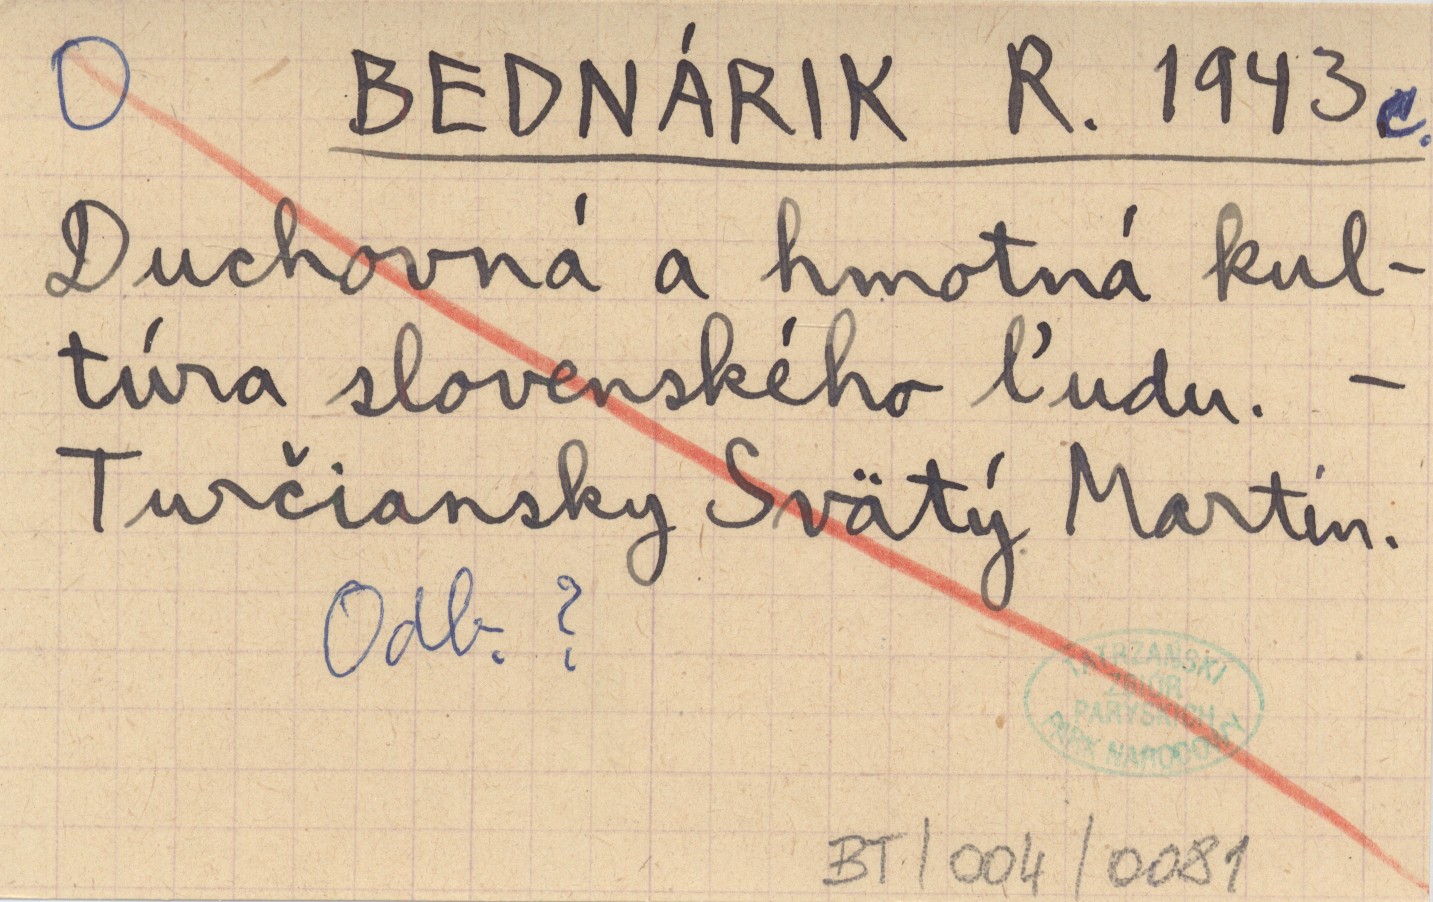 O BEDNÁRIK R. 1943c.
Duchovná a hmotná kul-
túra slovenského ľudu. -
Turčiansky Svätý Martin.
Odb. ?
TATRZAŃSKI
ZBIÓR
PARYSKICH
PARK NARODOWY
BT/004/0081